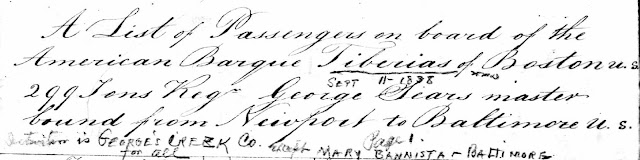 A List of Passengers on board of the
American Barque Tiberias of Boston U.S.
SEPT 11-1838
299 Tons Regr George Sears master
bound from Newport to Baltimore U.S.
Destination is GEORGE'S CREEK Co. except Page 1.
for all MARY BANNISTA - BALTIMORE